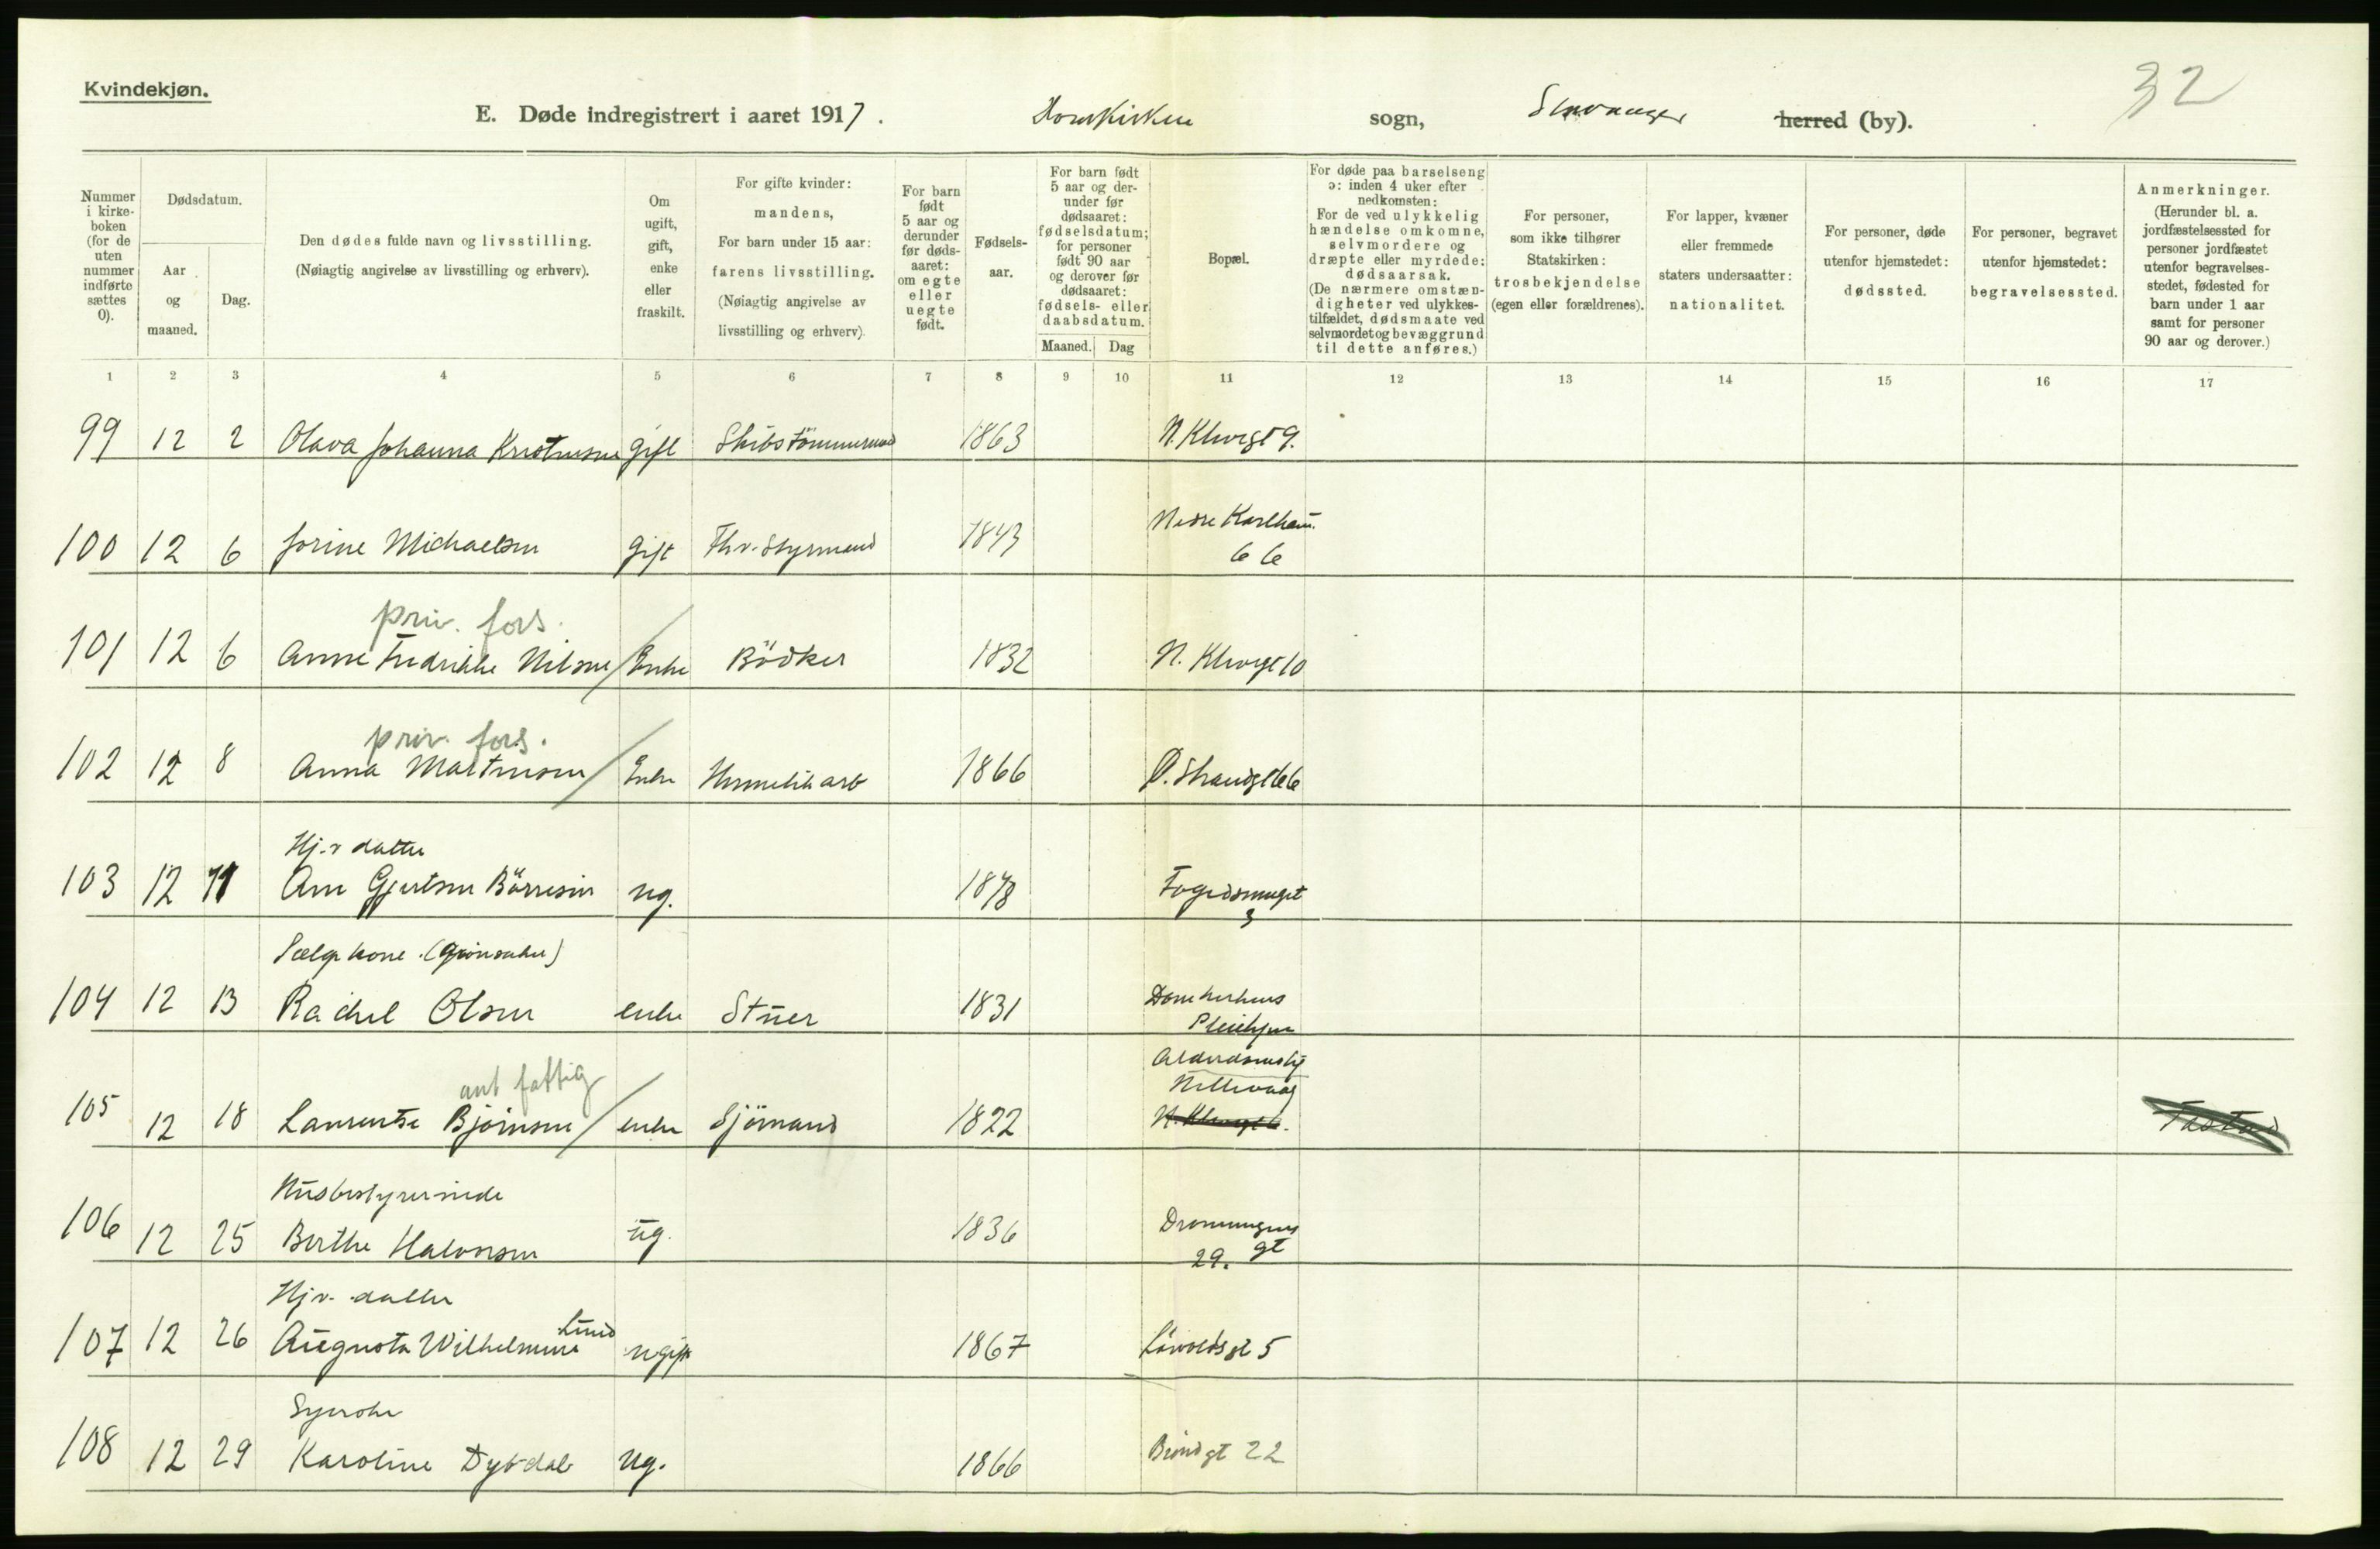 Kvindekjøn.
32
E. Døde indregistrert i aaret 1917. Domkirken sogn, Stavanger herred (by).
Nummer i kirke-boken (for de uten nummer indførte sættes 0).
Dødsdatum.
Aar og maaned.
Dag.
Den dødes fulde navn og livsstilling.
(Nøiagtig angivelse av livsstilling og erhverv).
Om ugift, gift, enke eller fraskilt.
For gifte kvinder: mandens, For barn under 15 aar: farens livsstilling. (Nøiagtig angivelse av livsstilling og erhverv).
For barn født 5 aar og derunder før døds-aaret: om egte eller uegte født.
Fødsels-aar.
For barn født 5 aar og der-under før dødsaaret: fødselsdatum; for personer født 90 aar og derover før dødsaaret: fødsels- eller daabsdatum.
Maaned. Dag
Bopæl.
For døde paa barselseng ɔ: inden 4 uker efter nedkomsten: For de ved ulykkelig hændelse omkomne, selvmordere og dræpte eller myrdede: dødsaarsak. (De nærmere omstæn-digheter ved ulykkes-tilfældet, dødsmaate ved selvmordet og bevæggrund til dette anføres.)
For personer, som ikke tilhører Statskirken: trosbekjendelse (egen eller forældrenes).
For lapper, kvæner eller fremmede staters undersaatter: nationalitet.
For personer, døde utenfor hjemstedet: dødssted.
For personer, begravet utenfor hjemstedet: begravelsessted.
Anmerkninger. (Herunder bl. a. jordfæstelsessted for personer jordfæstet utenfor begravelses-stedet, fødested for barn under 1 aar samt for personer 90 aar og derover.)
1 2 3 4 5 6 7 8 9 10 11 12 13 14 15 16 17
99 12 2 Olava Johanna Kristensen gift Skibstömmermand 1863 N. Klevegt 9.
100 12 6 Jorine Michaelsen gift Fhv. Styrmand 1843 Nedre
66
priv. fors.
101 12 6 Anne Fredrikke Nilsen Enke Bödker 1832 N. Klevegt 10
priv. fors.
102 12 8 Anna Martinsen Enke Hermetikarb 1866 Ø. Strandgt 66
Hj.v datter
103 12 11 Ane Gjertsen Börresen ug. 1878 Fogedsmuget
3
Sælgekone (Grönsaker)
104 12 13 Rachel Olsen enke Stuer 1831 Domkirkens
Pleiehjem
ant fattig
105 12 18 Laurentse Björnsen enke Sjömand 1822
Hillevaag
N. Klevegt 6.
Tasta
Husbestyrerinde
106 12 25 Berthe Halvorsen ug. 1836 Dronningens
29. gt
Hjv. datter
107 12 26 Augusta Wilhelmine Lund ugift 1867 Lövoldsgt 5
Syerske
108 12 29 Karoline Dybdal ug. 1866 Bröndgt 22